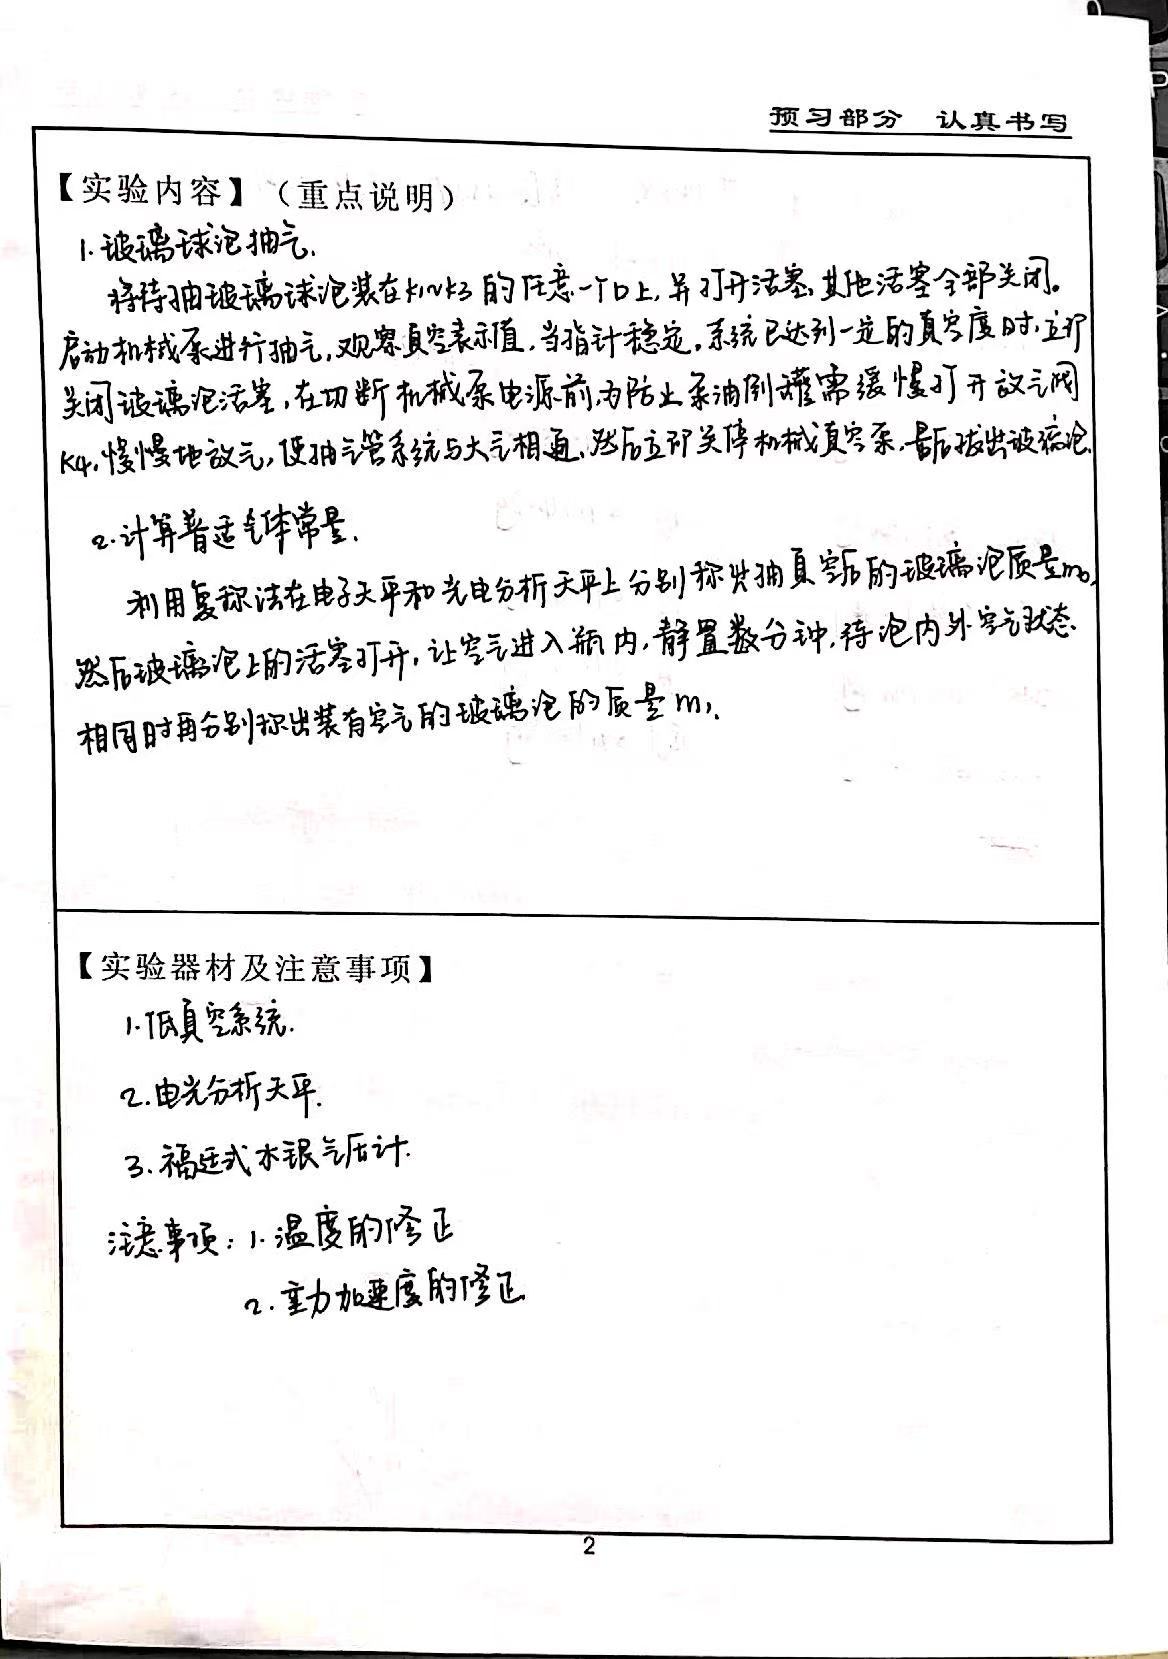 预习部分 认真书写
【实验内容】（重点说明）
1.玻璃球泡抽气.
将待抽玻璃球泡装在K1~K3的任意一个口上,并打开活塞,其他活塞全部关闭。
启动机械泵进行抽气,观察真空表示值,当指针稳定,系统已达到一定的真空度时,立即
关闭玻璃泡活塞,在切断机械泵电源前,为防止泵油倒罐需缓慢打开放气阀
K4,慢慢地放气,使抽气管系统与大气相通,然后立即关停机械真空泵,最后拔出玻璃泡.
2.计算普适气体常量.
利用复称法在电子天平和光电分析天平上分别称出抽真空后的玻璃泡质量m0,
然后玻璃泡上的活塞打开,让空气进入瓶内,静置数分钟,待泡内外空气状态
相同时再分别称出装有空气的玻璃泡的质量m1.
【实验器材及注意事项】
1.低真空系统.
2.电光分析天平.
3.福廷式水银气压计.
注意事项:1.温度的修正
2.重力加速度的修正
2